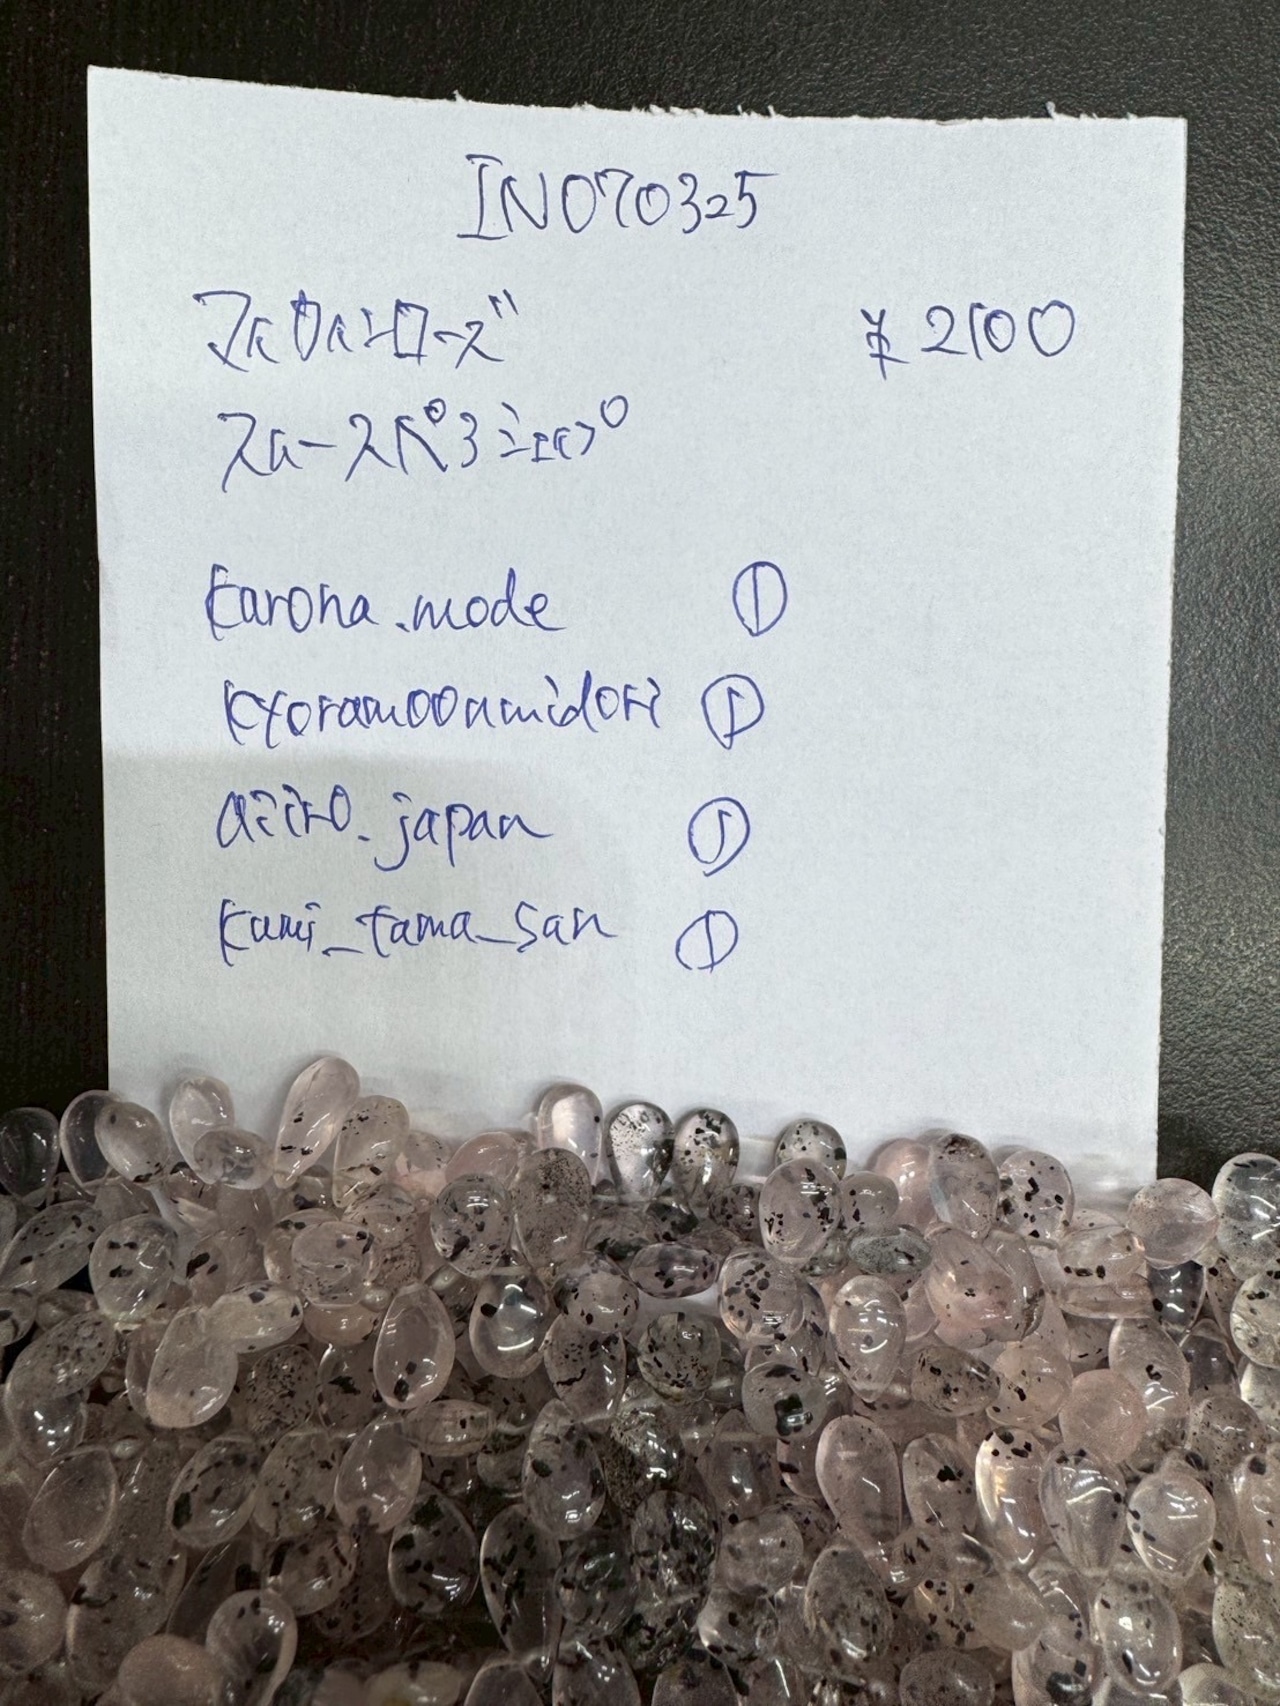 IN070325
マイカインローズ ¥2100
スムースペアシェイプ
karona.mode ①
kyoramoonmidori ①
aiiro.japan ①
kumi_tama_san ①